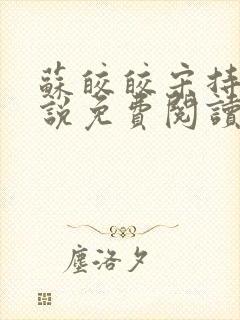 蘇皎皎宋持
說免費閱讀
塵洛夕